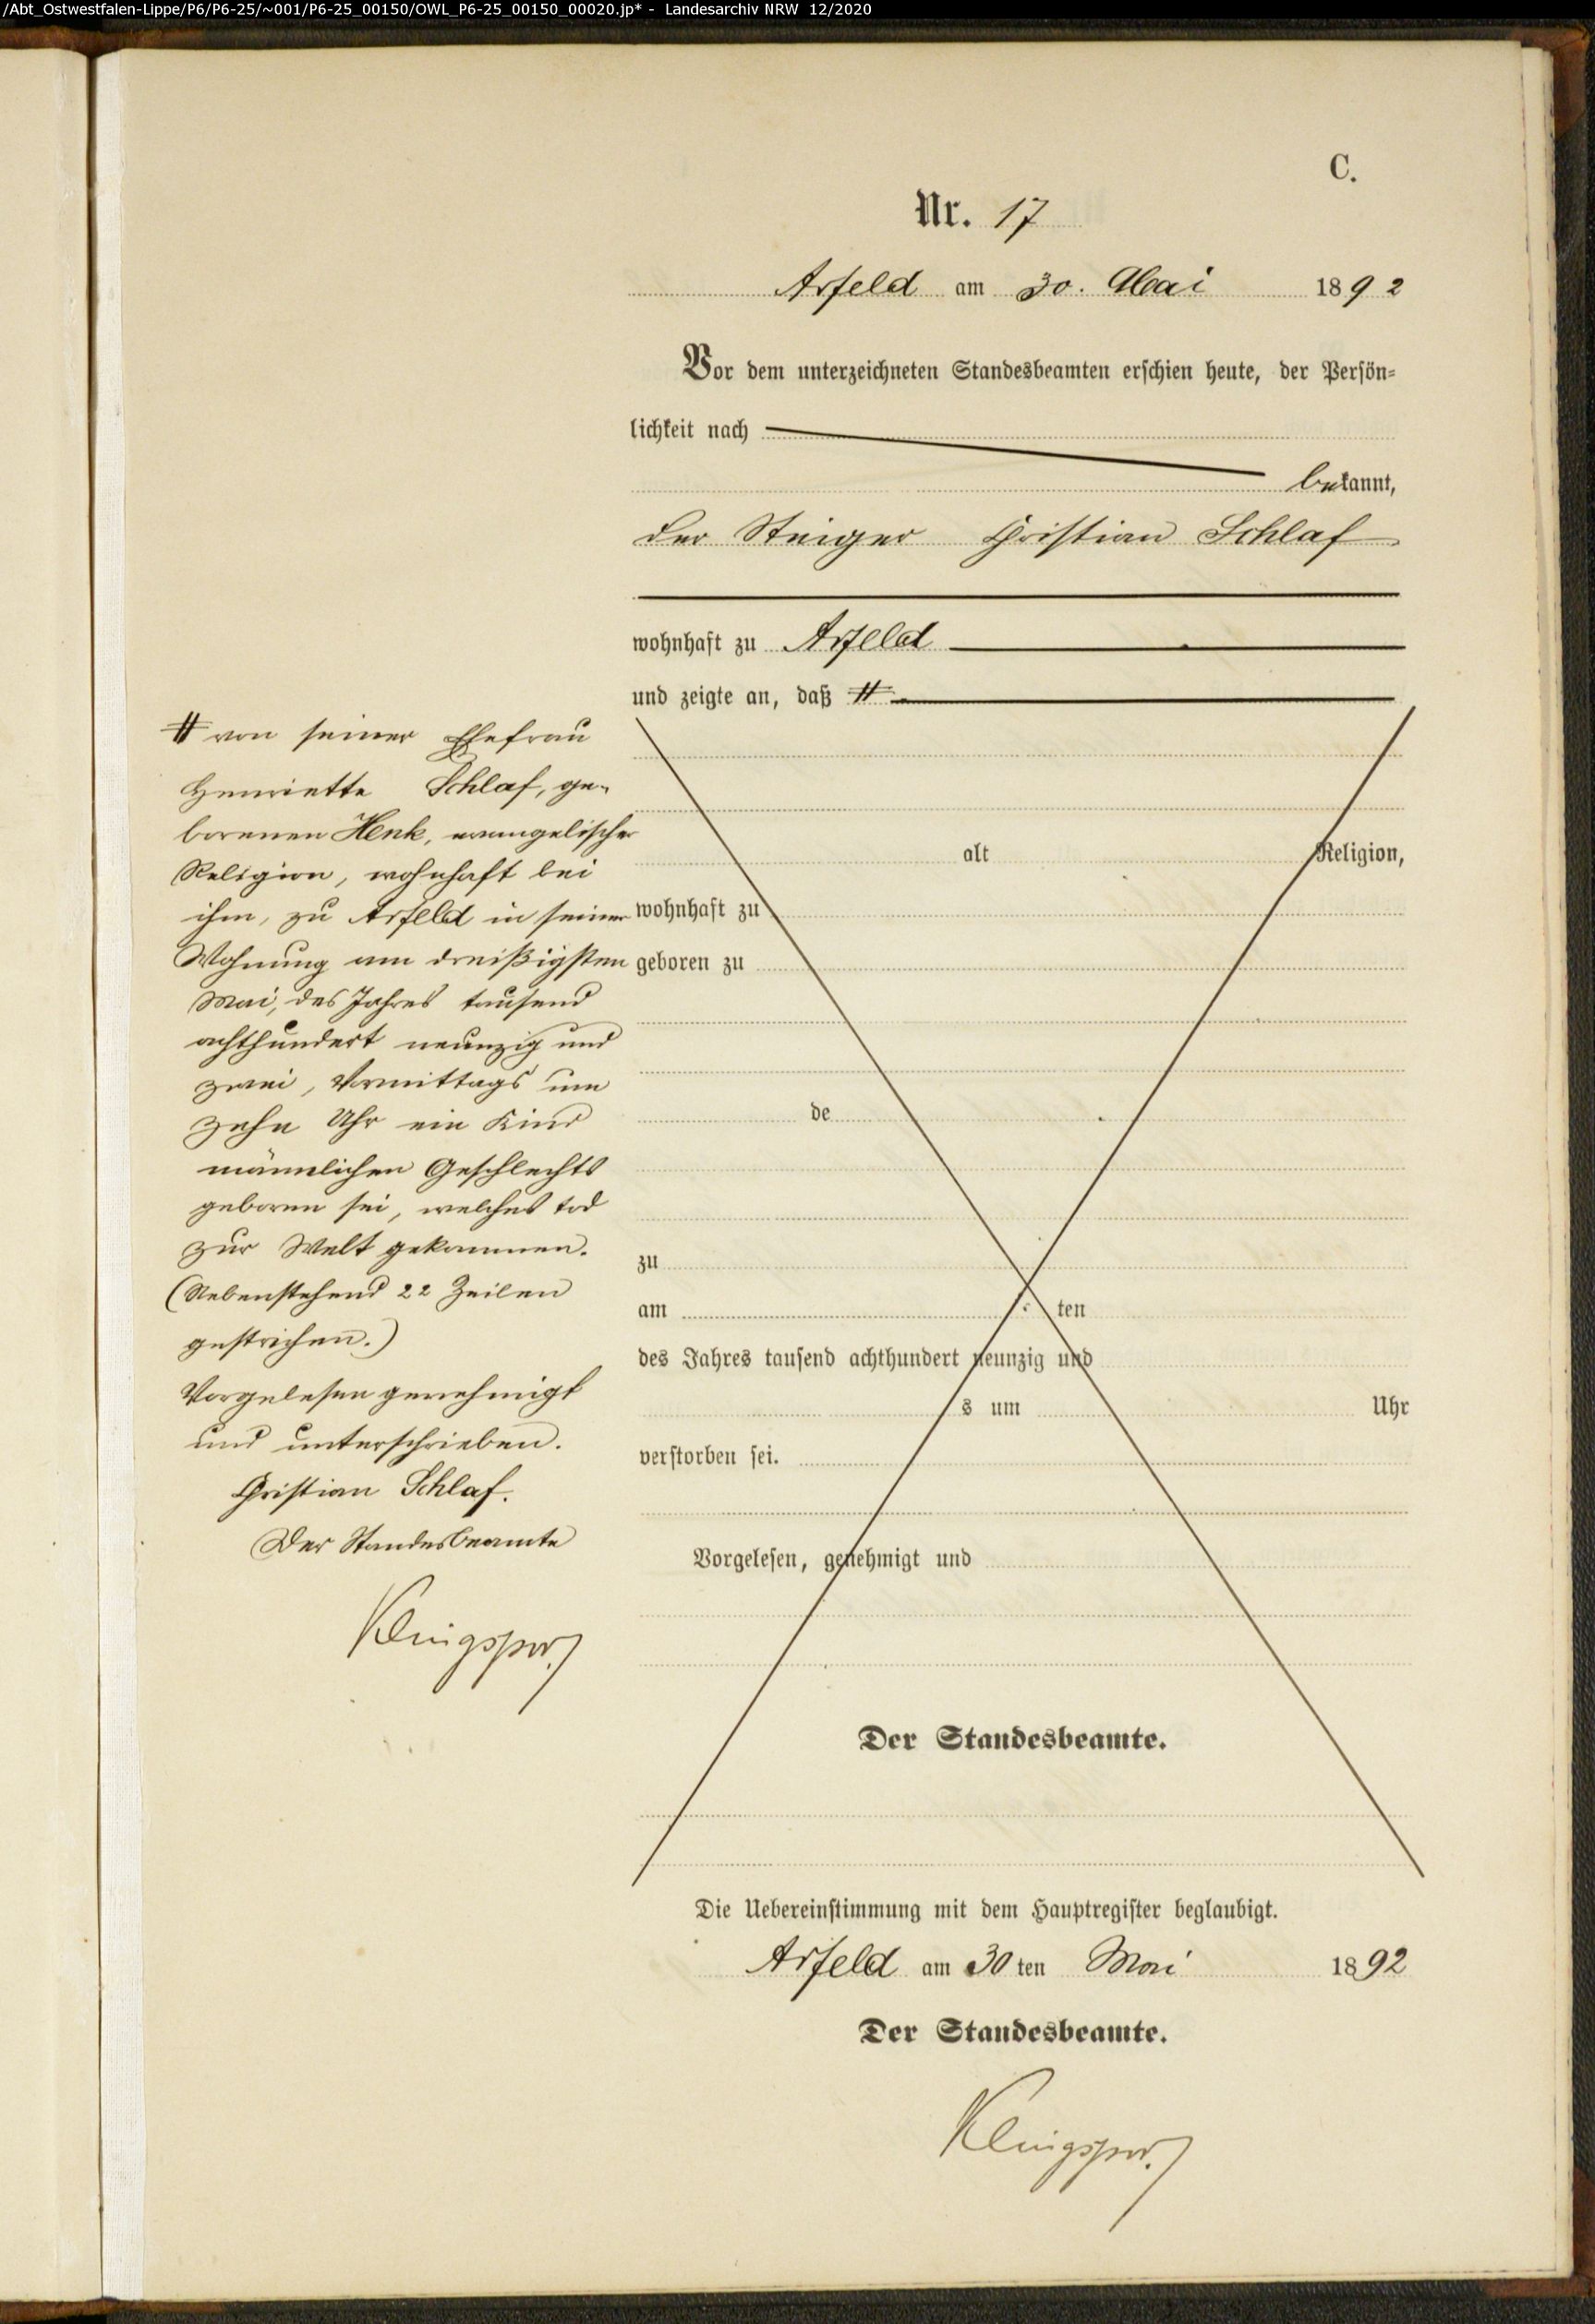 /Abt_Ostwestfalen-Lippe/P6/P6-25/~001/P6-25_00150/OWL_P6-25_00150_00020.jp* - Landesarchiv NRW 12/2020
C.
Nr. 17
Arfeld am 30. Mai 1892
Vor dem unterzeichneten Standesbeamten erschien heute, der Persön-
lichkeit nach
bekannt,
der Steiger Christian Schlaf
wohnhaft zu Arfeld
und zeigte an, daß #
# von seiner Ehefrau
Henriette Schlaf, ge-
borenen Henk, evangelischer
Religion, wohnhaft bei
ihm, zu Arfeld in seiner
Wohnung am dreißigsten
Mai, des Jahres tausend
achthundert neunzig und
zwei, Vormittags um
zehn Uhr ein Kind
männlichen Geschlechts
geboren sei, welches tod
zur Welt gekommen.
(Nebenstehend 22 Zeilen
gestrichen.)
Vorgelesen genehmigt
und unterschrieben.
Christian Schlaf.
Der Standesbeamte
Klingspor
alt Religion,
wohnhaft zu
geboren zu
de
zu
am ten
des Jahres tausend achthundert neunzig und
s um Uhr
verstorben sei.
Vorgelesen, genehmigt und
Der Standesbeamte.
Die Uebereinstimmung mit dem Hauptregister beglaubigt.
Arfeld am 30ten Mai 1892
Der Standesbeamte.
Klingspor.